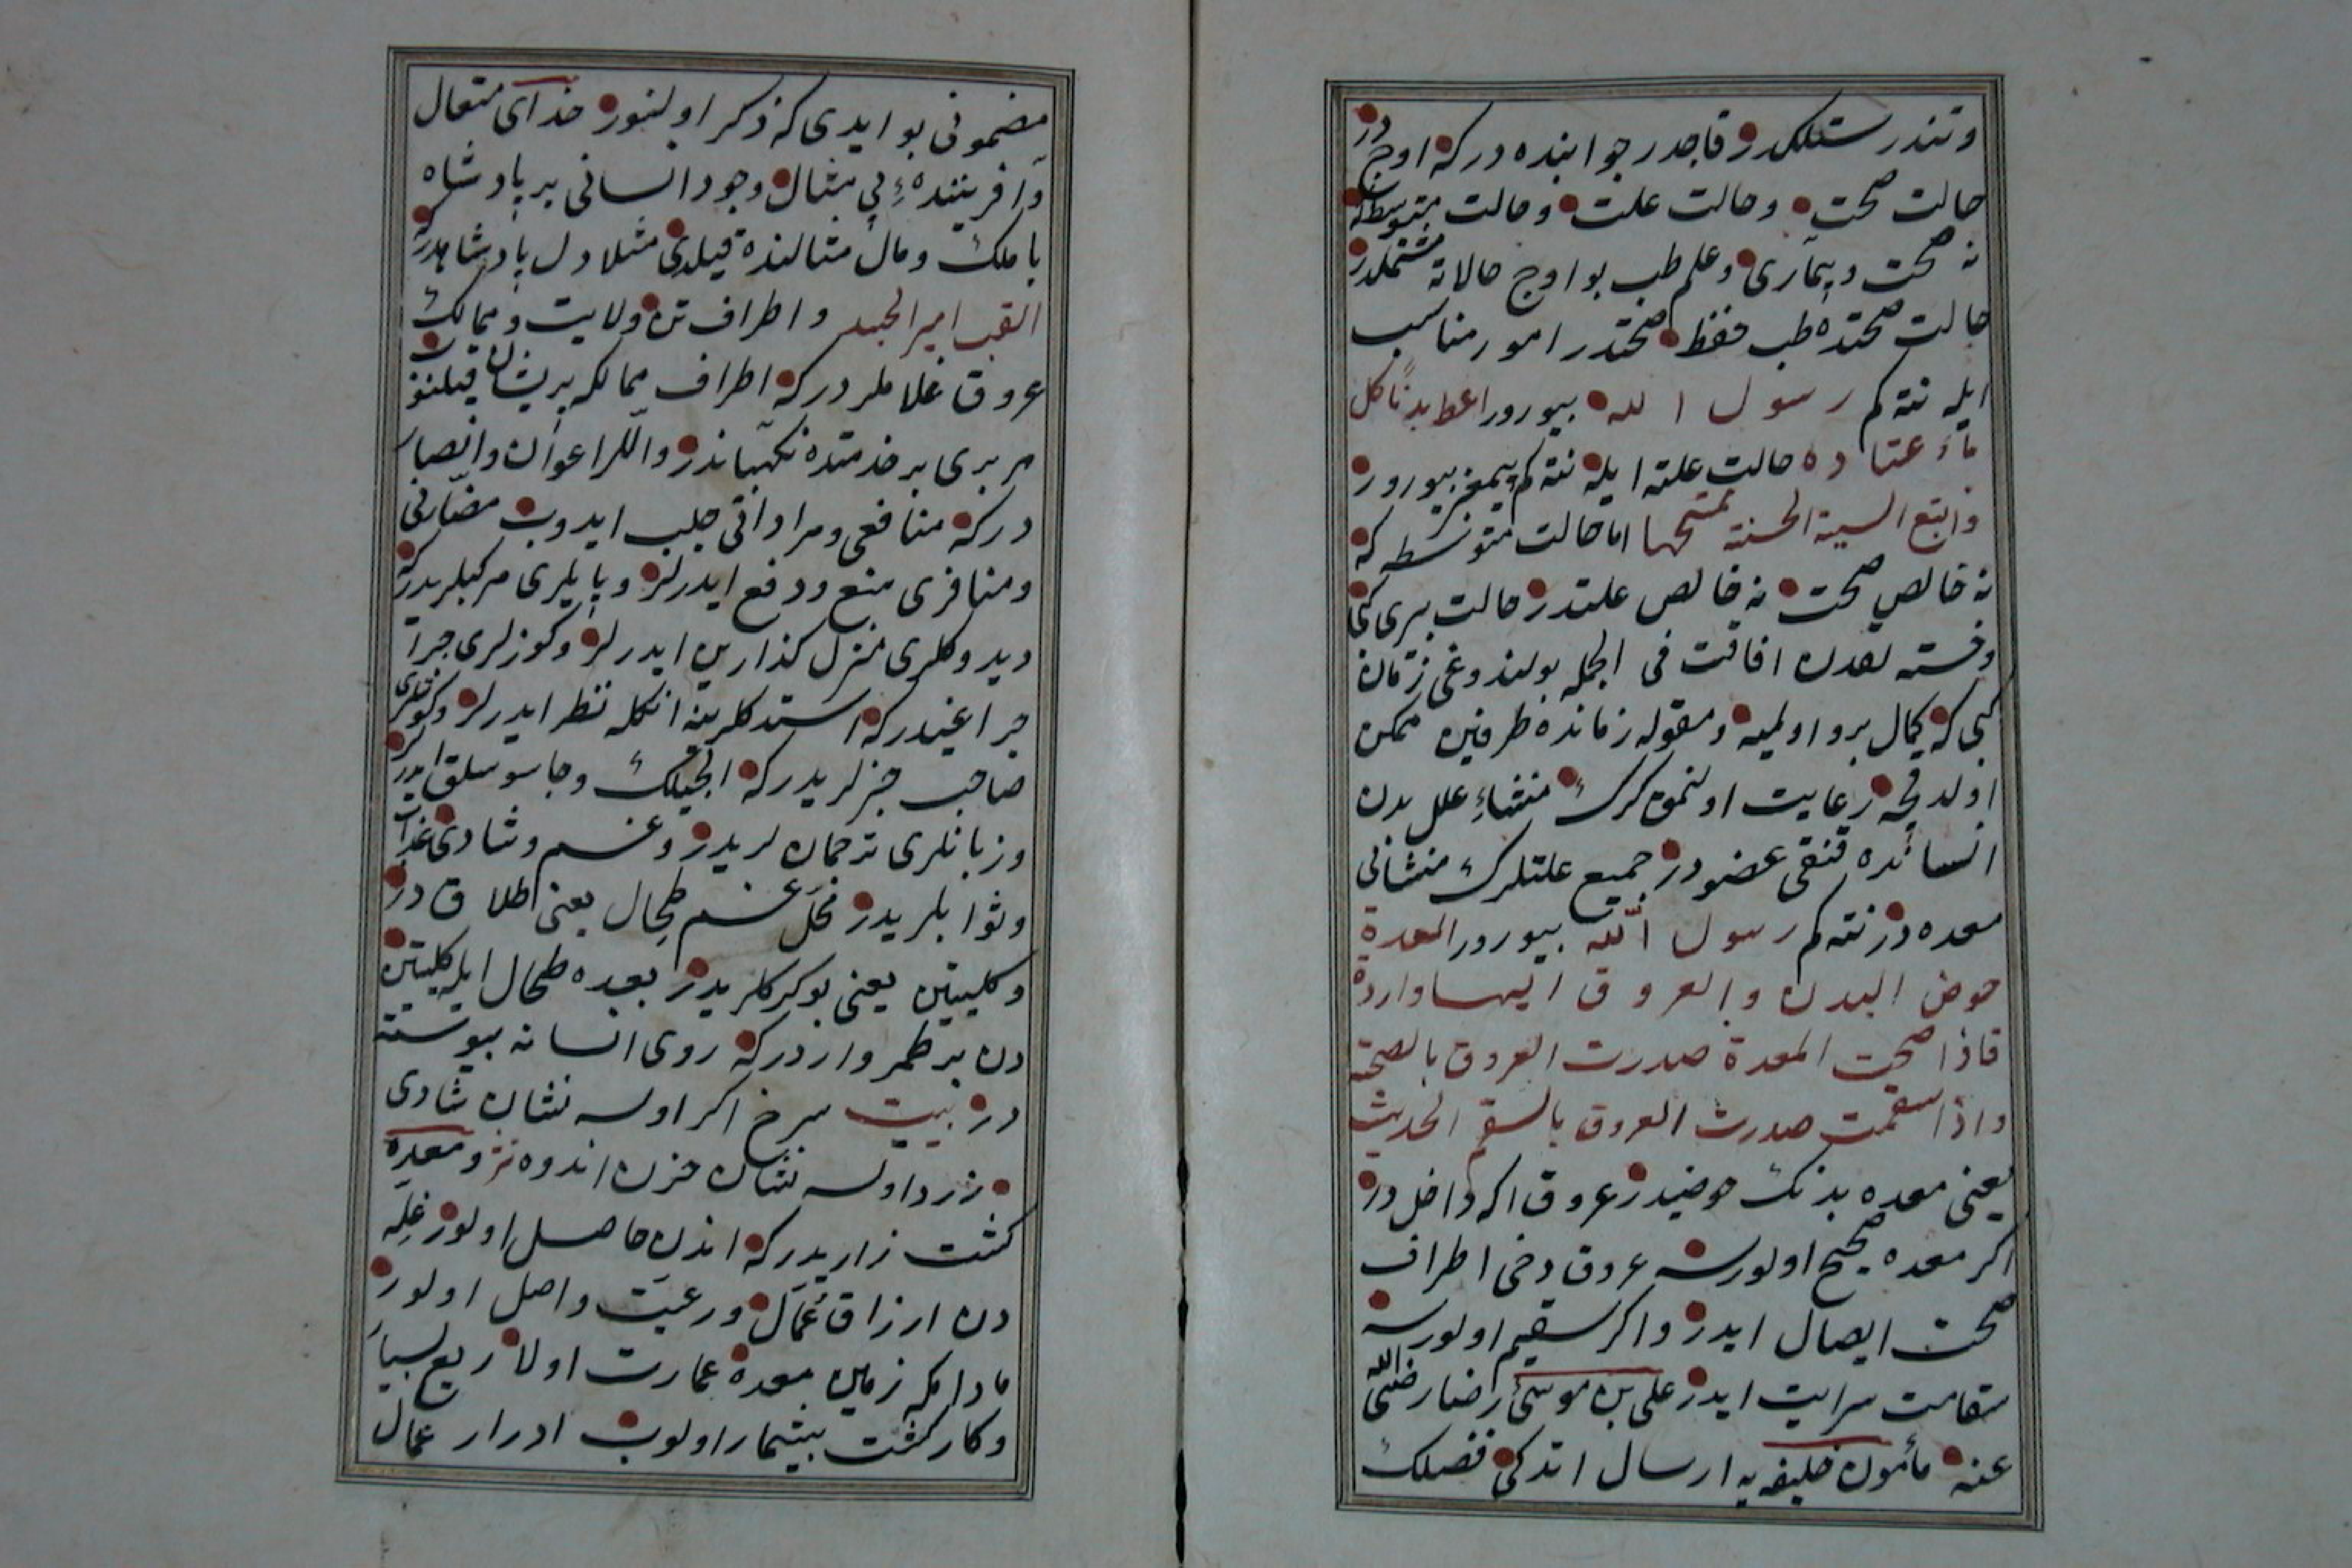 وتندرستلكدر قاجدر جوابنده دركه اوجدر
حالت صحت وحالت علت وحالت متوسطه كه
نه صحت وبيمارى وعلم طب بو اوج حالاته مشتملدر
حالت صحتده طب حفظ صحتدر امور مناسب
ايله نته كم رسول الله بيورور اعط بدنا كل
ما اعتاده حالت علته ايله نته كم پيغمبر بيورور
واتبع السيئة الحسنة تمحها اما حالت متوسطه كه
نه خالص صحت نه خالص علتدر حالت پيرى كبى
وخسته لقدن افاقت فى الجمله بولندوغى زمان
كبى كه كمال برو اولميه ومقوله زمانده طرفين ممكن
اولدقجه رعايت اولنمق كرك منشاء علل بدن
انسانده قنقى عضودر جميع علتلرك منشائى
معده در نته كم رسول الله بيورور المعدة
حوض البدن والعروق اليها واردة
فاذا صحت المعدة صدرت العروق بالصحة
واذا سقمت صدرت العروق بالسقم الحديث
يعنى معده بدنك حوضيدر عروق اكه داخل در
اكر معده صحيح اولورسه عروق دخى اطراف
صحت ايصال ايدر واكر سقيم اولورسه
سقامت سرايت ايدر على بن موسى رضا رضى الله
عنه مأمون خليفه يه ارسال اتدكى فصلك
مضمونى بو ايدى كه ذكر اولنور خداى متعال
وآفريننده ء بى مثال وجود انسانى بر پادشاه
با ملك ومال مثالنده قيلدى مثلا دل پادشاهدر كه
القلب امير الجسد واطراف تن ولايت وممالك
عروق غلاملر دركه اطراف ممالكه پريشان قيلنوب
هر برى بر خدمتده نكهباندر واللر اعوان وانصار
دركه منافعى ومراداتى جلب ايدوب مضارى
ومنافرى منع ودفع ايدرلر وپايلرى مركبلريدر كه
ديدوكلرى منزل كذارين ايدرلر وكوزلرى جرا
جراغيدر كه استدكلرينه انكله نظر ايدرلر وكوشلرى
صاحب خبرلريدر كه الجيلك وجاسوسلق ايدرلر
وزبانلرى ترجمان لريدر وغم وشادى عذاب
وثوابلريدر محل غم طحال يعنى طلاق در
وكليتين يعنى بوكركلريدر بعده طحال ايله كليتين
دن بر طمر واردر كه روى انسانه پيوسته
در بيت سرخ اكر اولسه نشان شادى
زرد اولسه نشان حزن اندوه در ومعده
كشت زاريدر كه اندن حاصل اولور غله
دن ارزاق عمال ورعيت واصل اولور
مادامكه زمين معده عمارت اولا ريع بسيار
وكار كشت بيشمار اولوب ادرار عمال